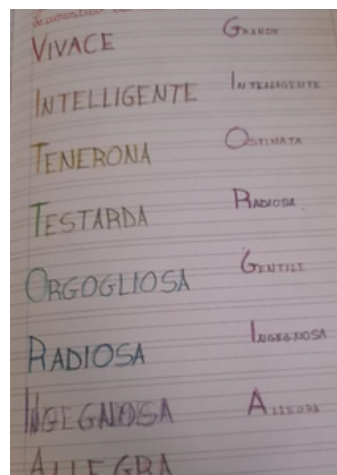 VIVACE
INTELLIGENTE
TENERONA
TESTARDA
ORGOGLIOSA
RADIOSA
INGEGNOSA
ALLEGRA
GRANDE
INTELLIGENTE
OSTINATA
RADIOSA
GENTILE
INGEGNOSA
ALLEGRA